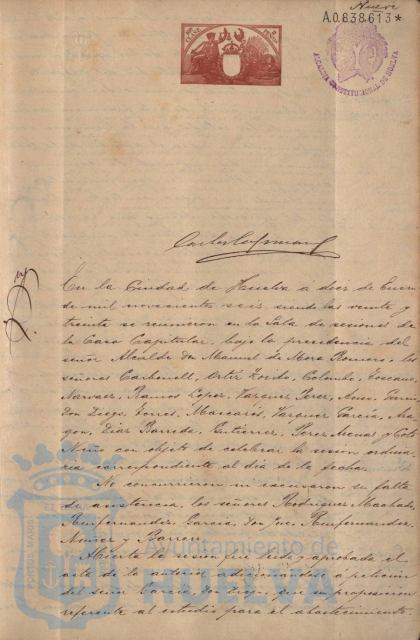 Nueve
A.0.838.613*
ALCALDIA CONSTITUCIONAL DE HUELVA
En la Ciudad de Huelva a diez de Enero
de mil novecientos seis siendo las veinte y
treinta se reunieron en la Sala de sesiones de
la Casa Capitular, bajo la presidencia del
señor Alcalde Don Manuel de Mora Romero, los
señores Carbonell, Ortiz Toido, Colombo, Toscano
Narvaez, Ramos Lopez, Vazquez Perez, García,
Don Diego, Torres, Mascarós, Vazquez García, Ma-
gon, Diaz Barreda, Gutierrez, Perez y Coto
con objeto de celebrar la sesion ordina-
ria correspondiente al dia de la fecha.
No concurrieron ni excusaron su falta
de asistencia, los señores Rodriguez Machado,
Garcia, Don José,
y Barrera.
Abierta la sesion fue leida y aprobada el
acta de la anterior adicionandose á peticion
del señor García, Don Diego, que su proposicion
referente al estudio para el abastecimiento
PORTUS MARIS
Ayuntamiento de
HUELVA